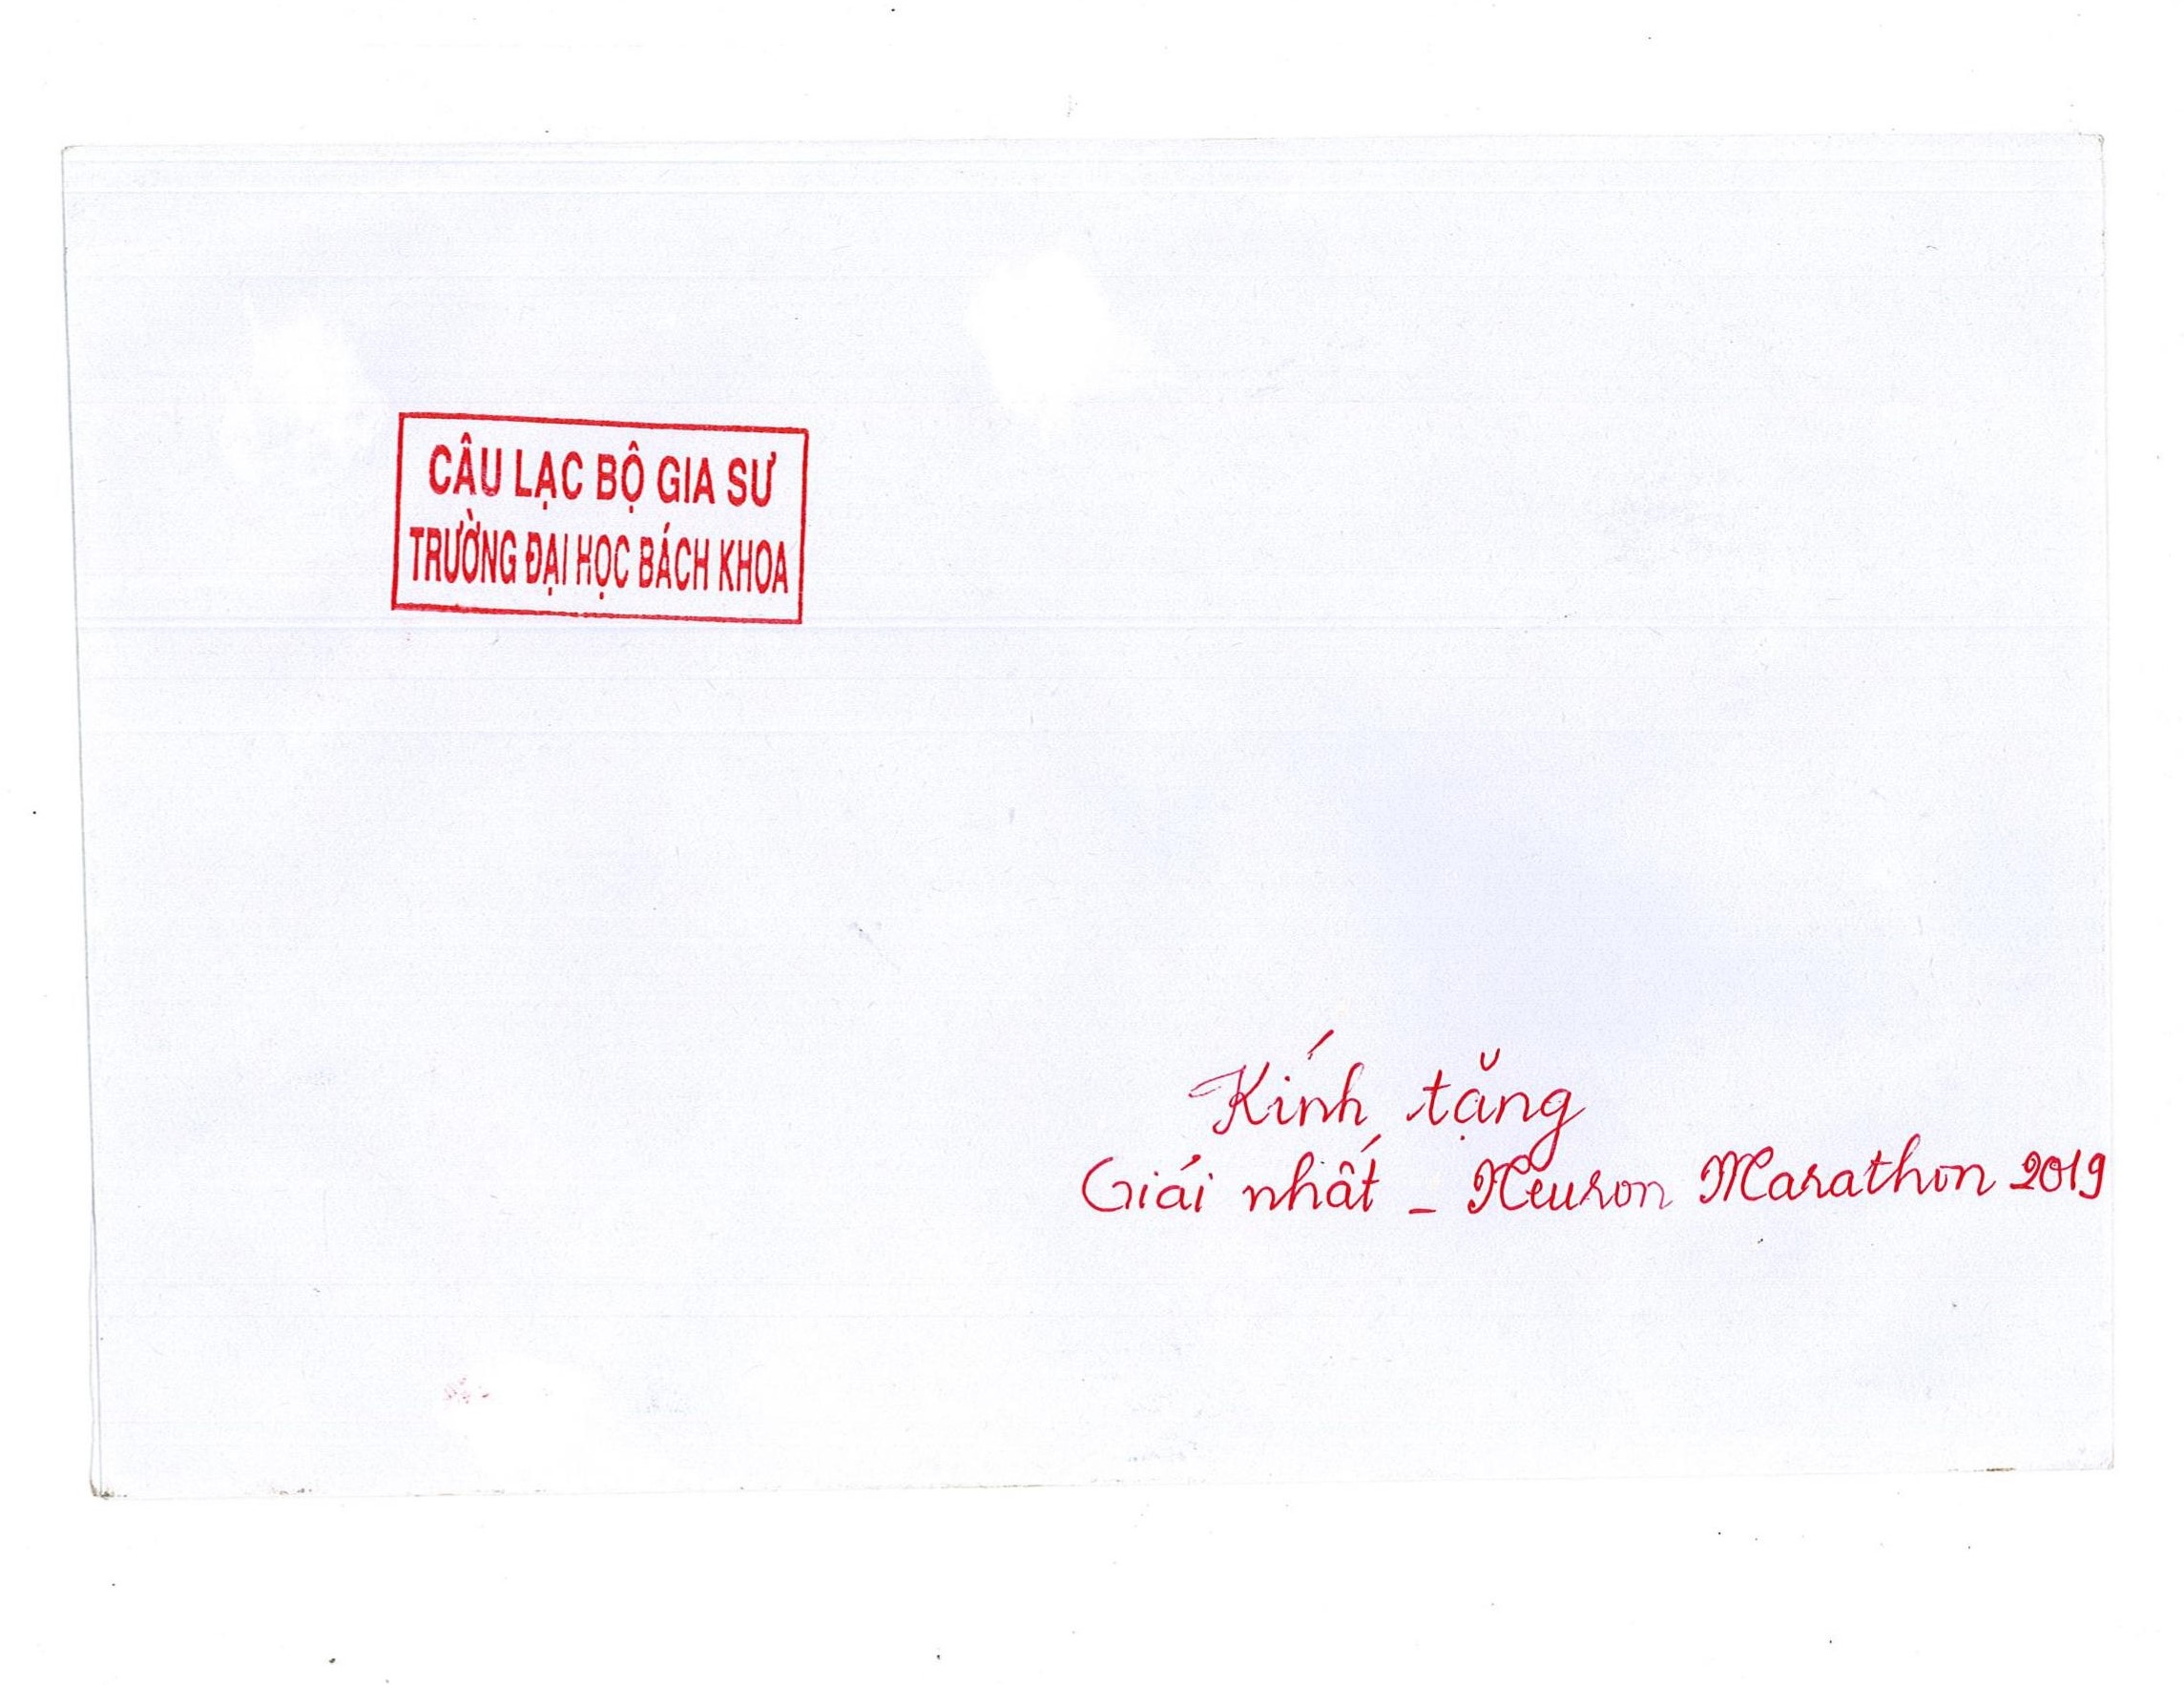 CÂU LẠC BỘ GIA SƯ
TRƯỜNG ĐẠI HỌC BÁCH KHOA
Kính tặng
Giải nhất - Neuron Marathon 2019